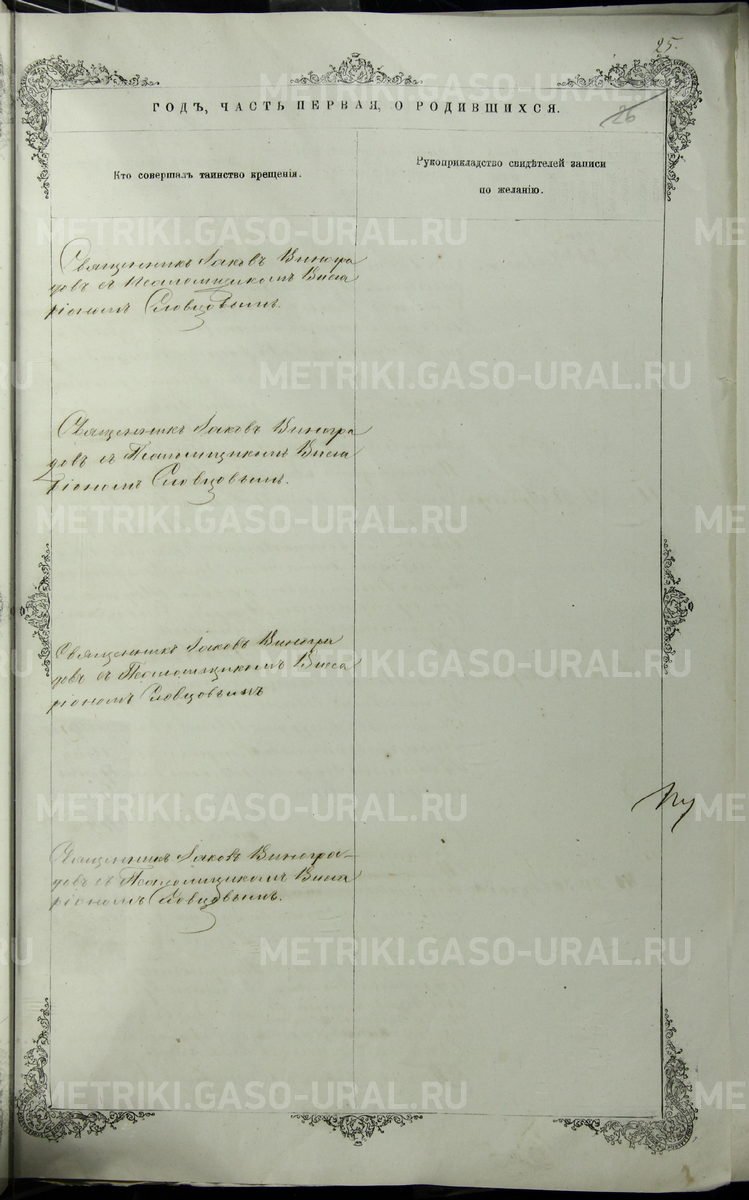 25.
26
ГОДЪ, ЧАСТЬ ПЕРВАЯ, О РОДИВШИХСЯ.
Кто совершалъ таинство крещенія.
Рукоприкладство свидѣтелей записи
по желанію.
Священникъ Іаковъ Виногра
довъ съ Псаломщикомъ Висса
ріономъ Словцовымъ.
Священникъ Іаковъ Виногра
довъ съ Псаломщикомъ Висса
ріономъ Словцовымъ.
Священникъ Іаковъ Виногра
довъ съ Псаломщикомъ Висса
ріономъ Словцовымъ
Священникъ Іаковъ Виногра-
довъ съ Псаломщикомъ Висса
ріономъ Словцовымъ.
METRIKI.GASO-URAL.RU